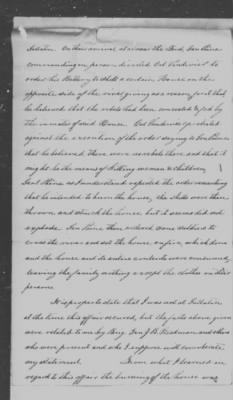 On their arrival at across the
commanding in person directed Col
order his Battery to Shell a certain House on the
opposite side of the river giving as a reason for it that
he believed that the rebels had been
the inmates of said House. Col protested
against the execution of the order saying to Gen
that he believed there were no rebels there and that it
might be the means of killing women & children,
Gen repeated the order remarking
that he intended to burn the house, the shells were then
thrown and struck the house, but it seems did not
explode. Gen then ordered some soldiers to
cross the river and set the house on fire, which done
and the house and its entire contents were consumed,
leaving the family nothing except the clothes on their
persons
It is proper to state that I was not at
at the time this affair occurred, but the facts above given
were related to me by Brig. Gen J. B. and others
who were present and who I suppose will corroborate
my statement. From what I learned in
regard to this affair the burning of the house was